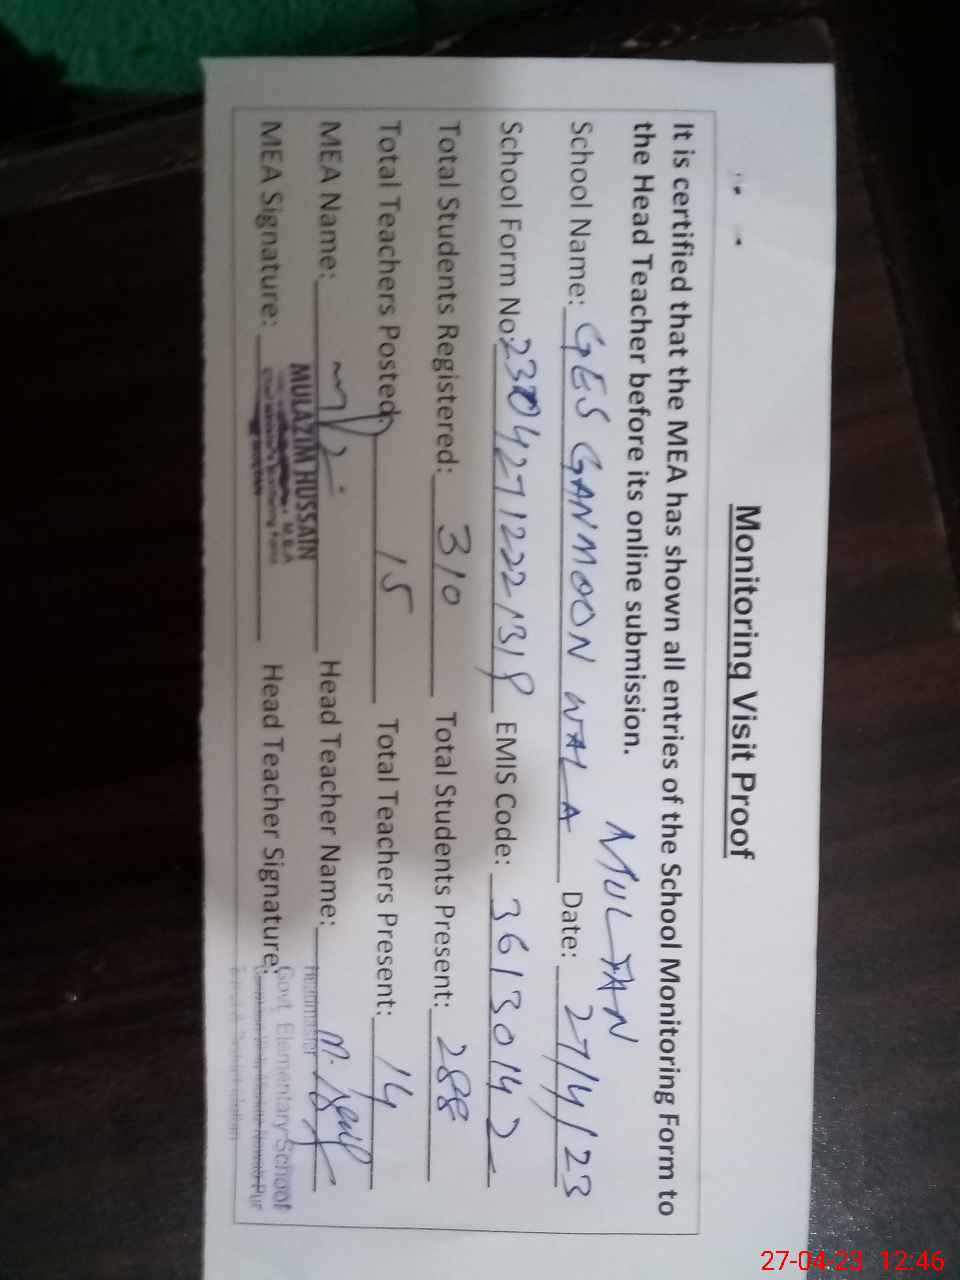 Monitoring Visit Proof
It is certified that the MEA has shown all entries of the School Monitoring Form to
the Head Teacher before its online submission. MULTAN
School Name: GES GANMOON WALA Date: 27/4/23
School Form No: EMIS Code: 36130142
Total Students Registered: 310 Total Students Present: 288
Total Teachers Posted: 15 Total Teachers Present: 14
MEA Name: Head Teacher Name:
MULAZIM HUSSAIN
M.B.A
Headmaster
MEA Signature: Head Teacher Signature:
Govt. Elementary School
27-04-23 12:46